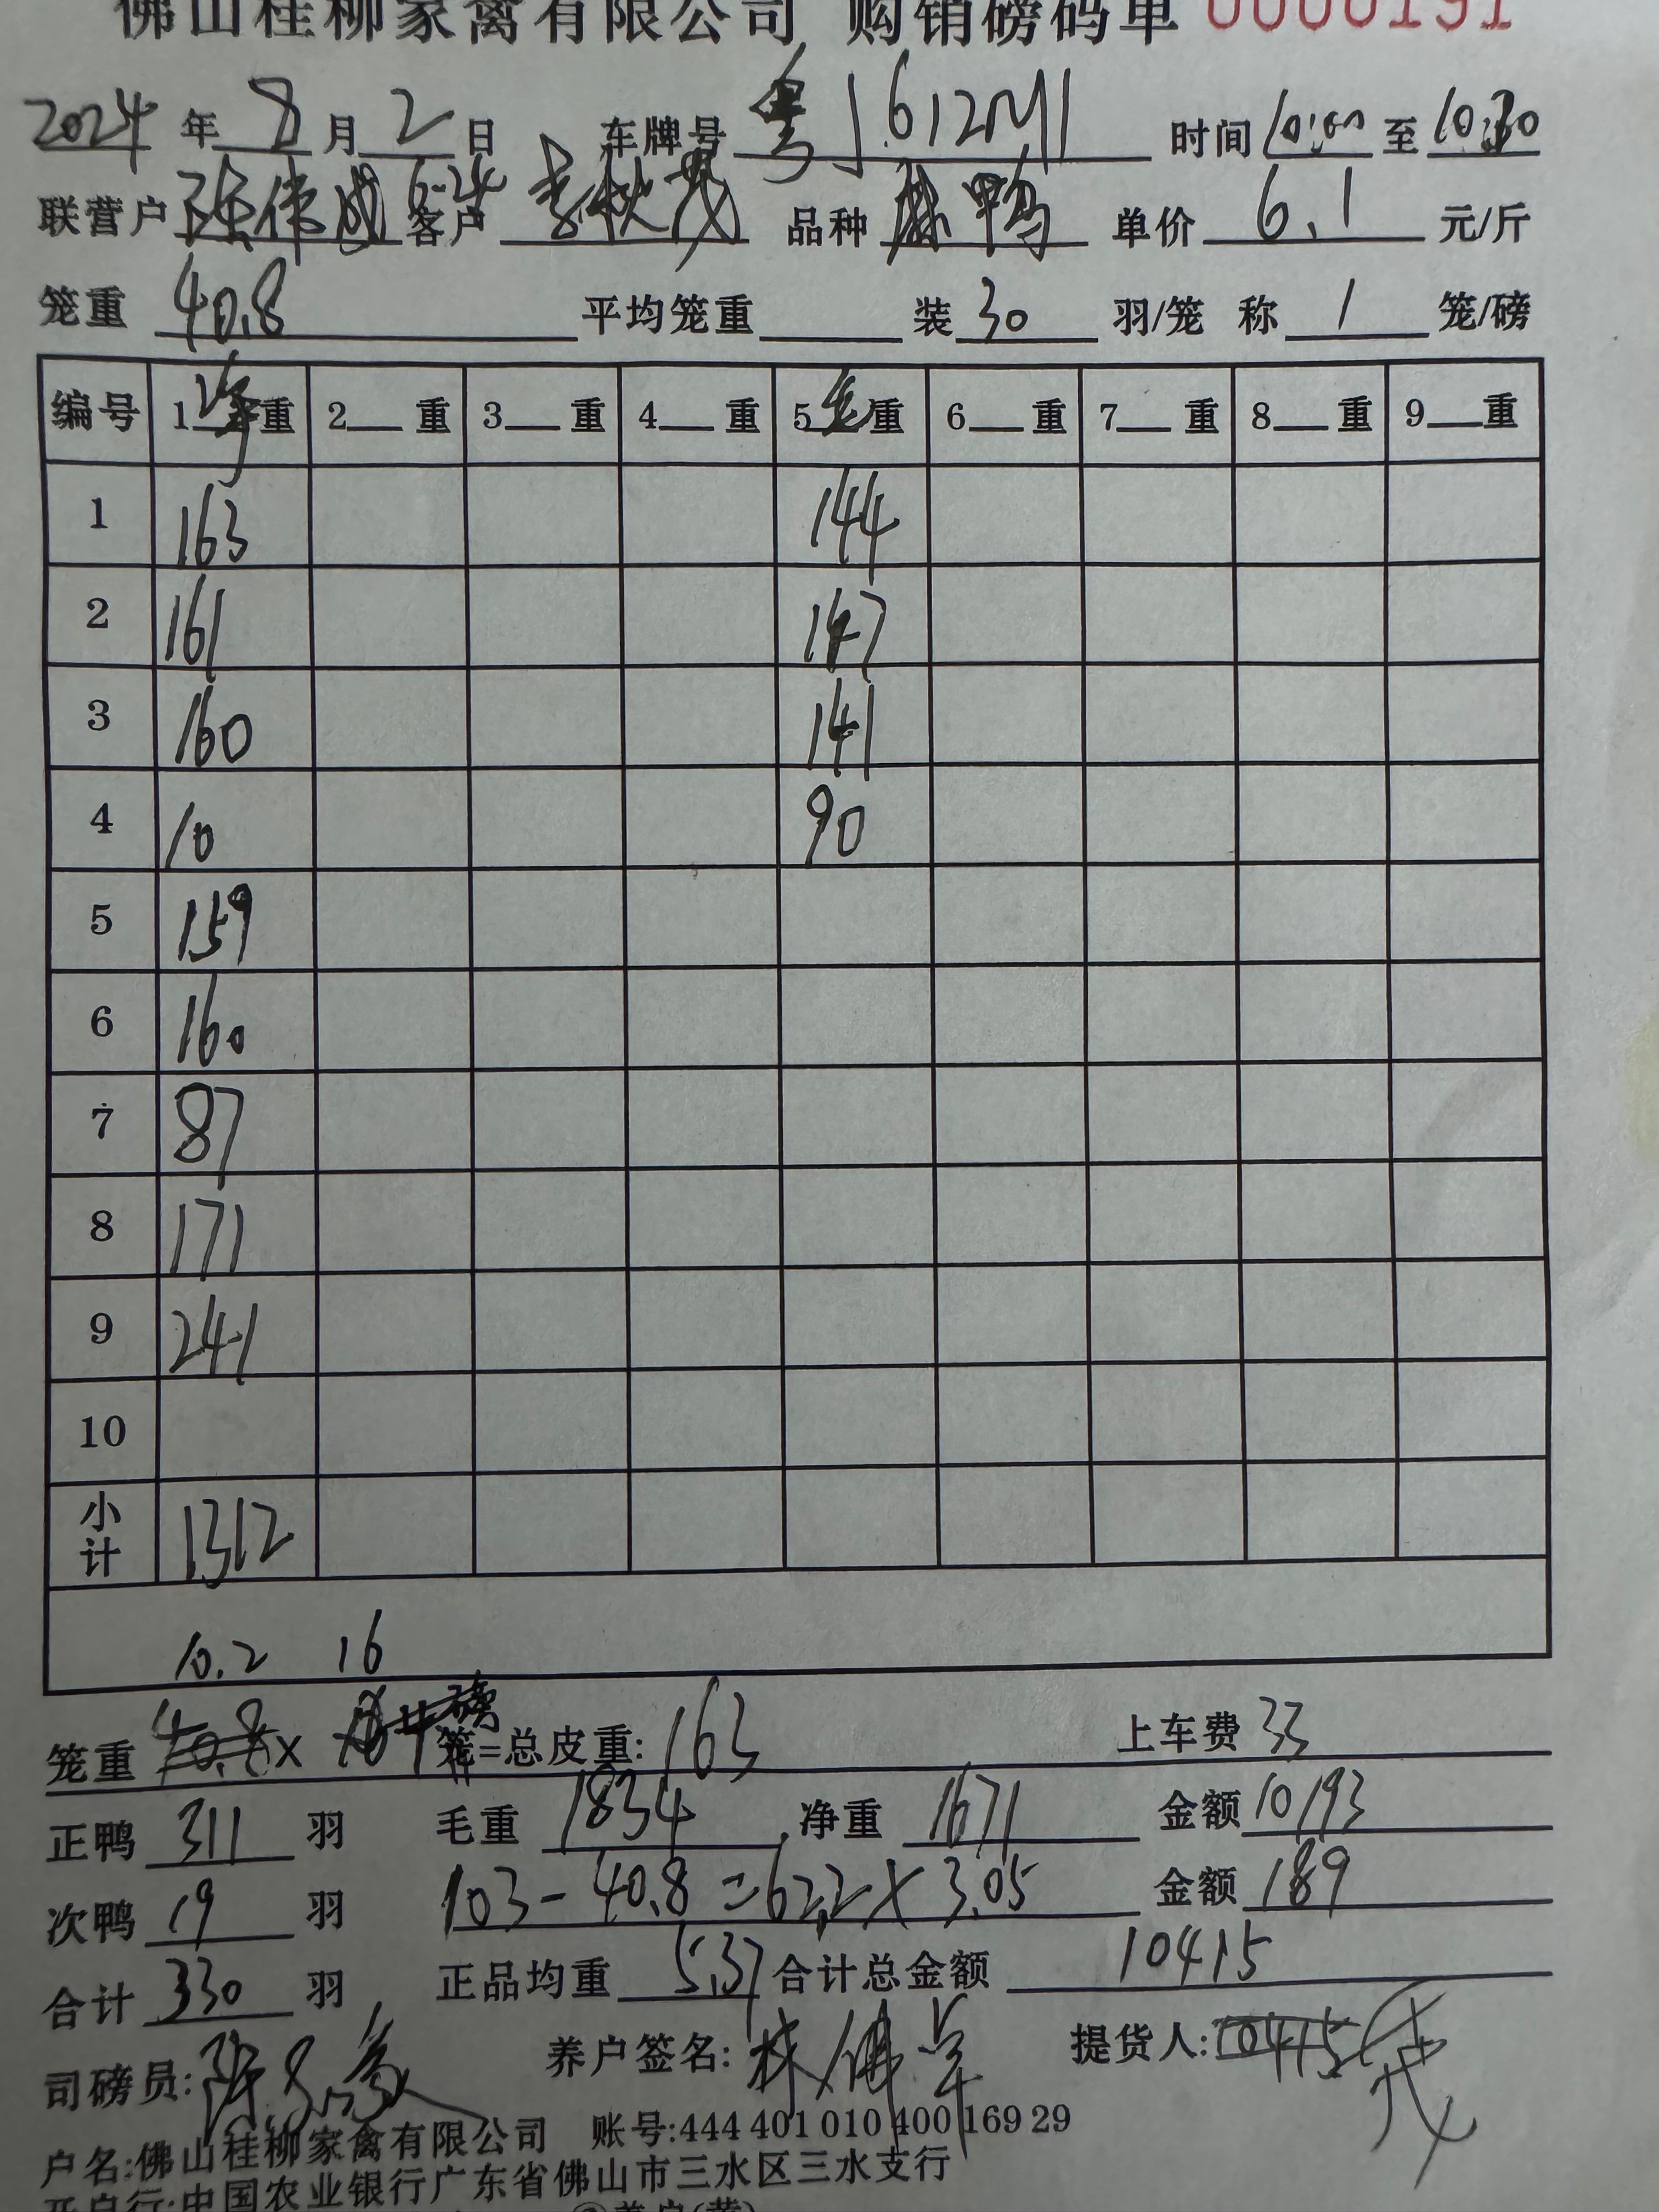 佛山桂柳家禽有限公司 购销磅码单 0000191
2024年8月2日 车牌号 粤J612M1 时间10:00至10:30
联营户 张伟成 6-24 客户 李秋茂 品种 麻鸭 单价 6.1 元/斤
笼重 40.8 平均笼重 装 30 羽/笼 称 1 笼/磅
编号 1 净重 2 重 3 重 4 重 5 毛重 6 重 7 重 8 重 9 重
1 163 144
2 161 147
3 160 141
4 10 90
5 159
6 160
7 87
8 171
9 241
10
小计 1312
10.2 16
笼重 40.8 X 笼=总皮重: 163 上车费 33
正鸭 311 羽 毛重 1834 净重 1671 金额 10193
次鸭 19 羽 103-40.8=62.2×3.05 金额 189
合计 330 羽 正品均重 5.37 合计总金额 10415
司磅员: 养户签名: 提货人: 10415 茂
户名:佛山桂柳家禽有限公司 账号:444 401 010 400 169 29
开户行:中国农业银行广东省佛山市三水区三水支行